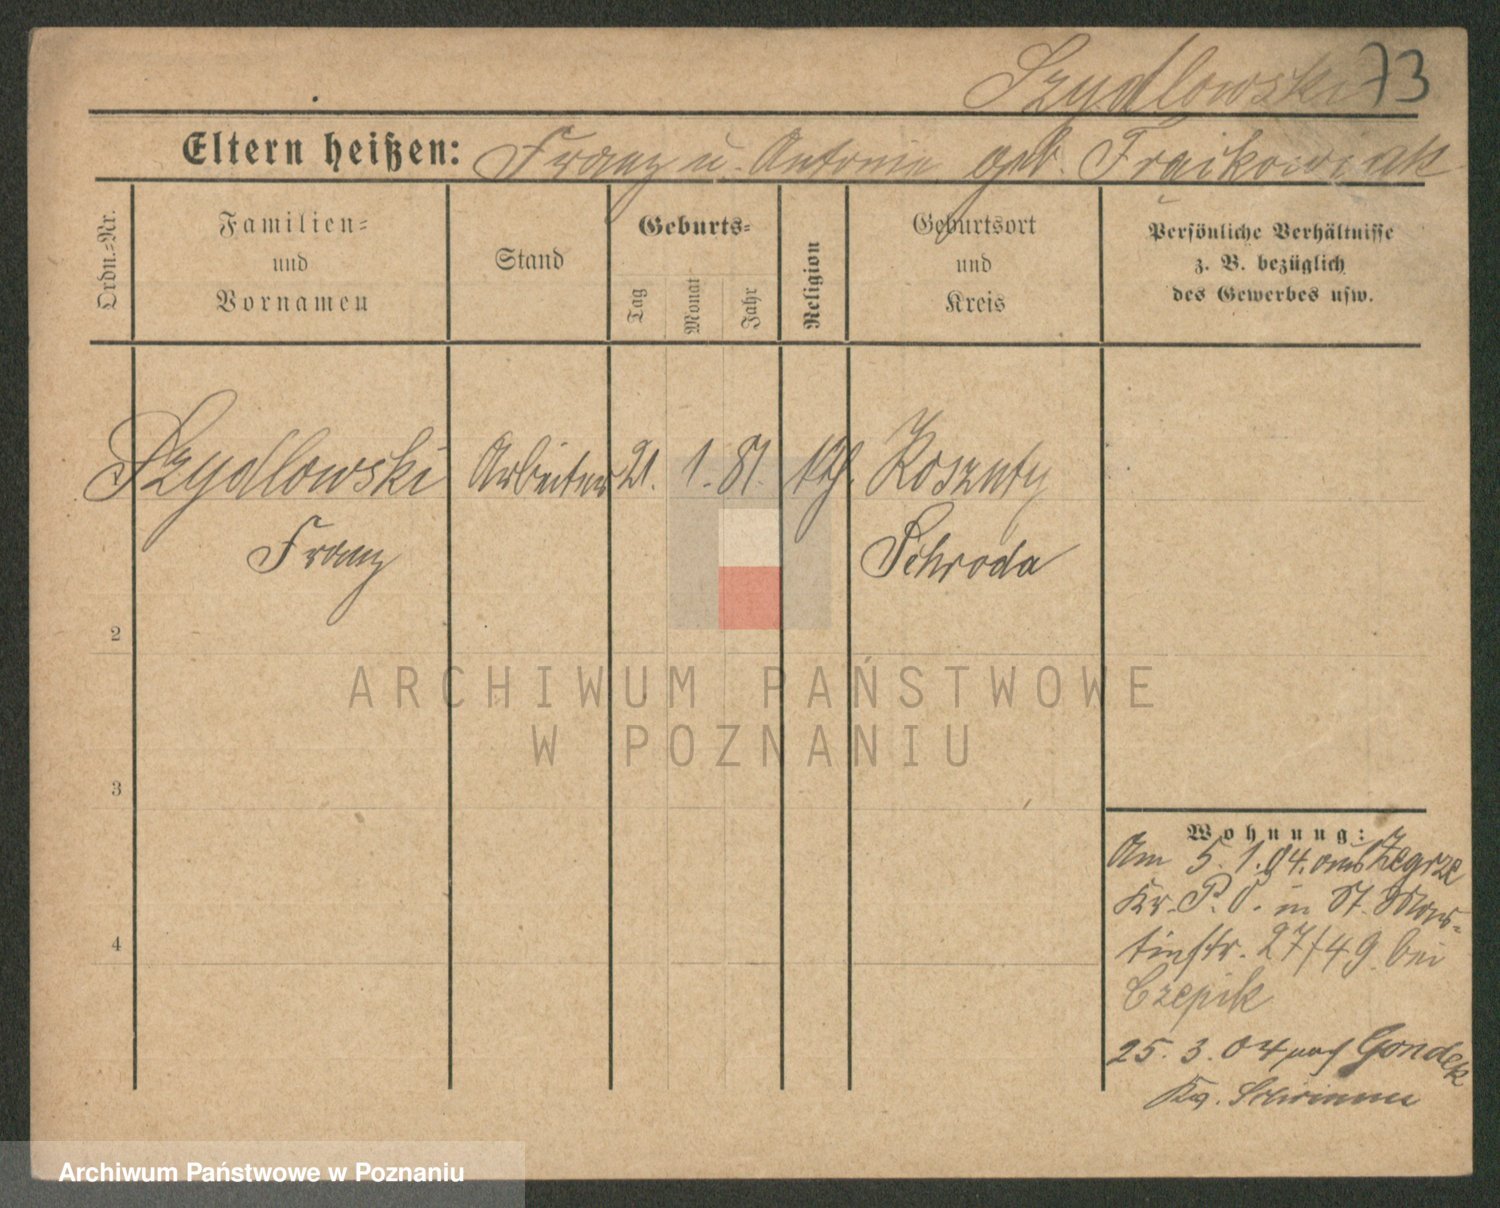 Szydlowski 73
Eltern heißen: Franz u. Antonie geb. Fraikowiak
Ordn.-Nr.
Familien-
und
Vornamen
Stand
Geburts-
Tag
Monat
Jahr
Religion
Geburtsort
und
Kreis
Persönliche Verhältnisse
z. B. bezüglich
des Gewerbes usw.
Szydlowski Arbeiter 21. 1. 81. kth. Koszuty
Franz Schroda
2
3
4
Wohnung:
Am 5.1.04. aus Zegrze
Kr. P. O. in St. Mar-
tinstr. 27/49. bei
Czepik
25. 3. 04 nach Gondek
Kr. Schrimm
ARCHIWUM PAŃSTWOWE
W POZNANIU
Archiwum Państwowe w Poznaniu